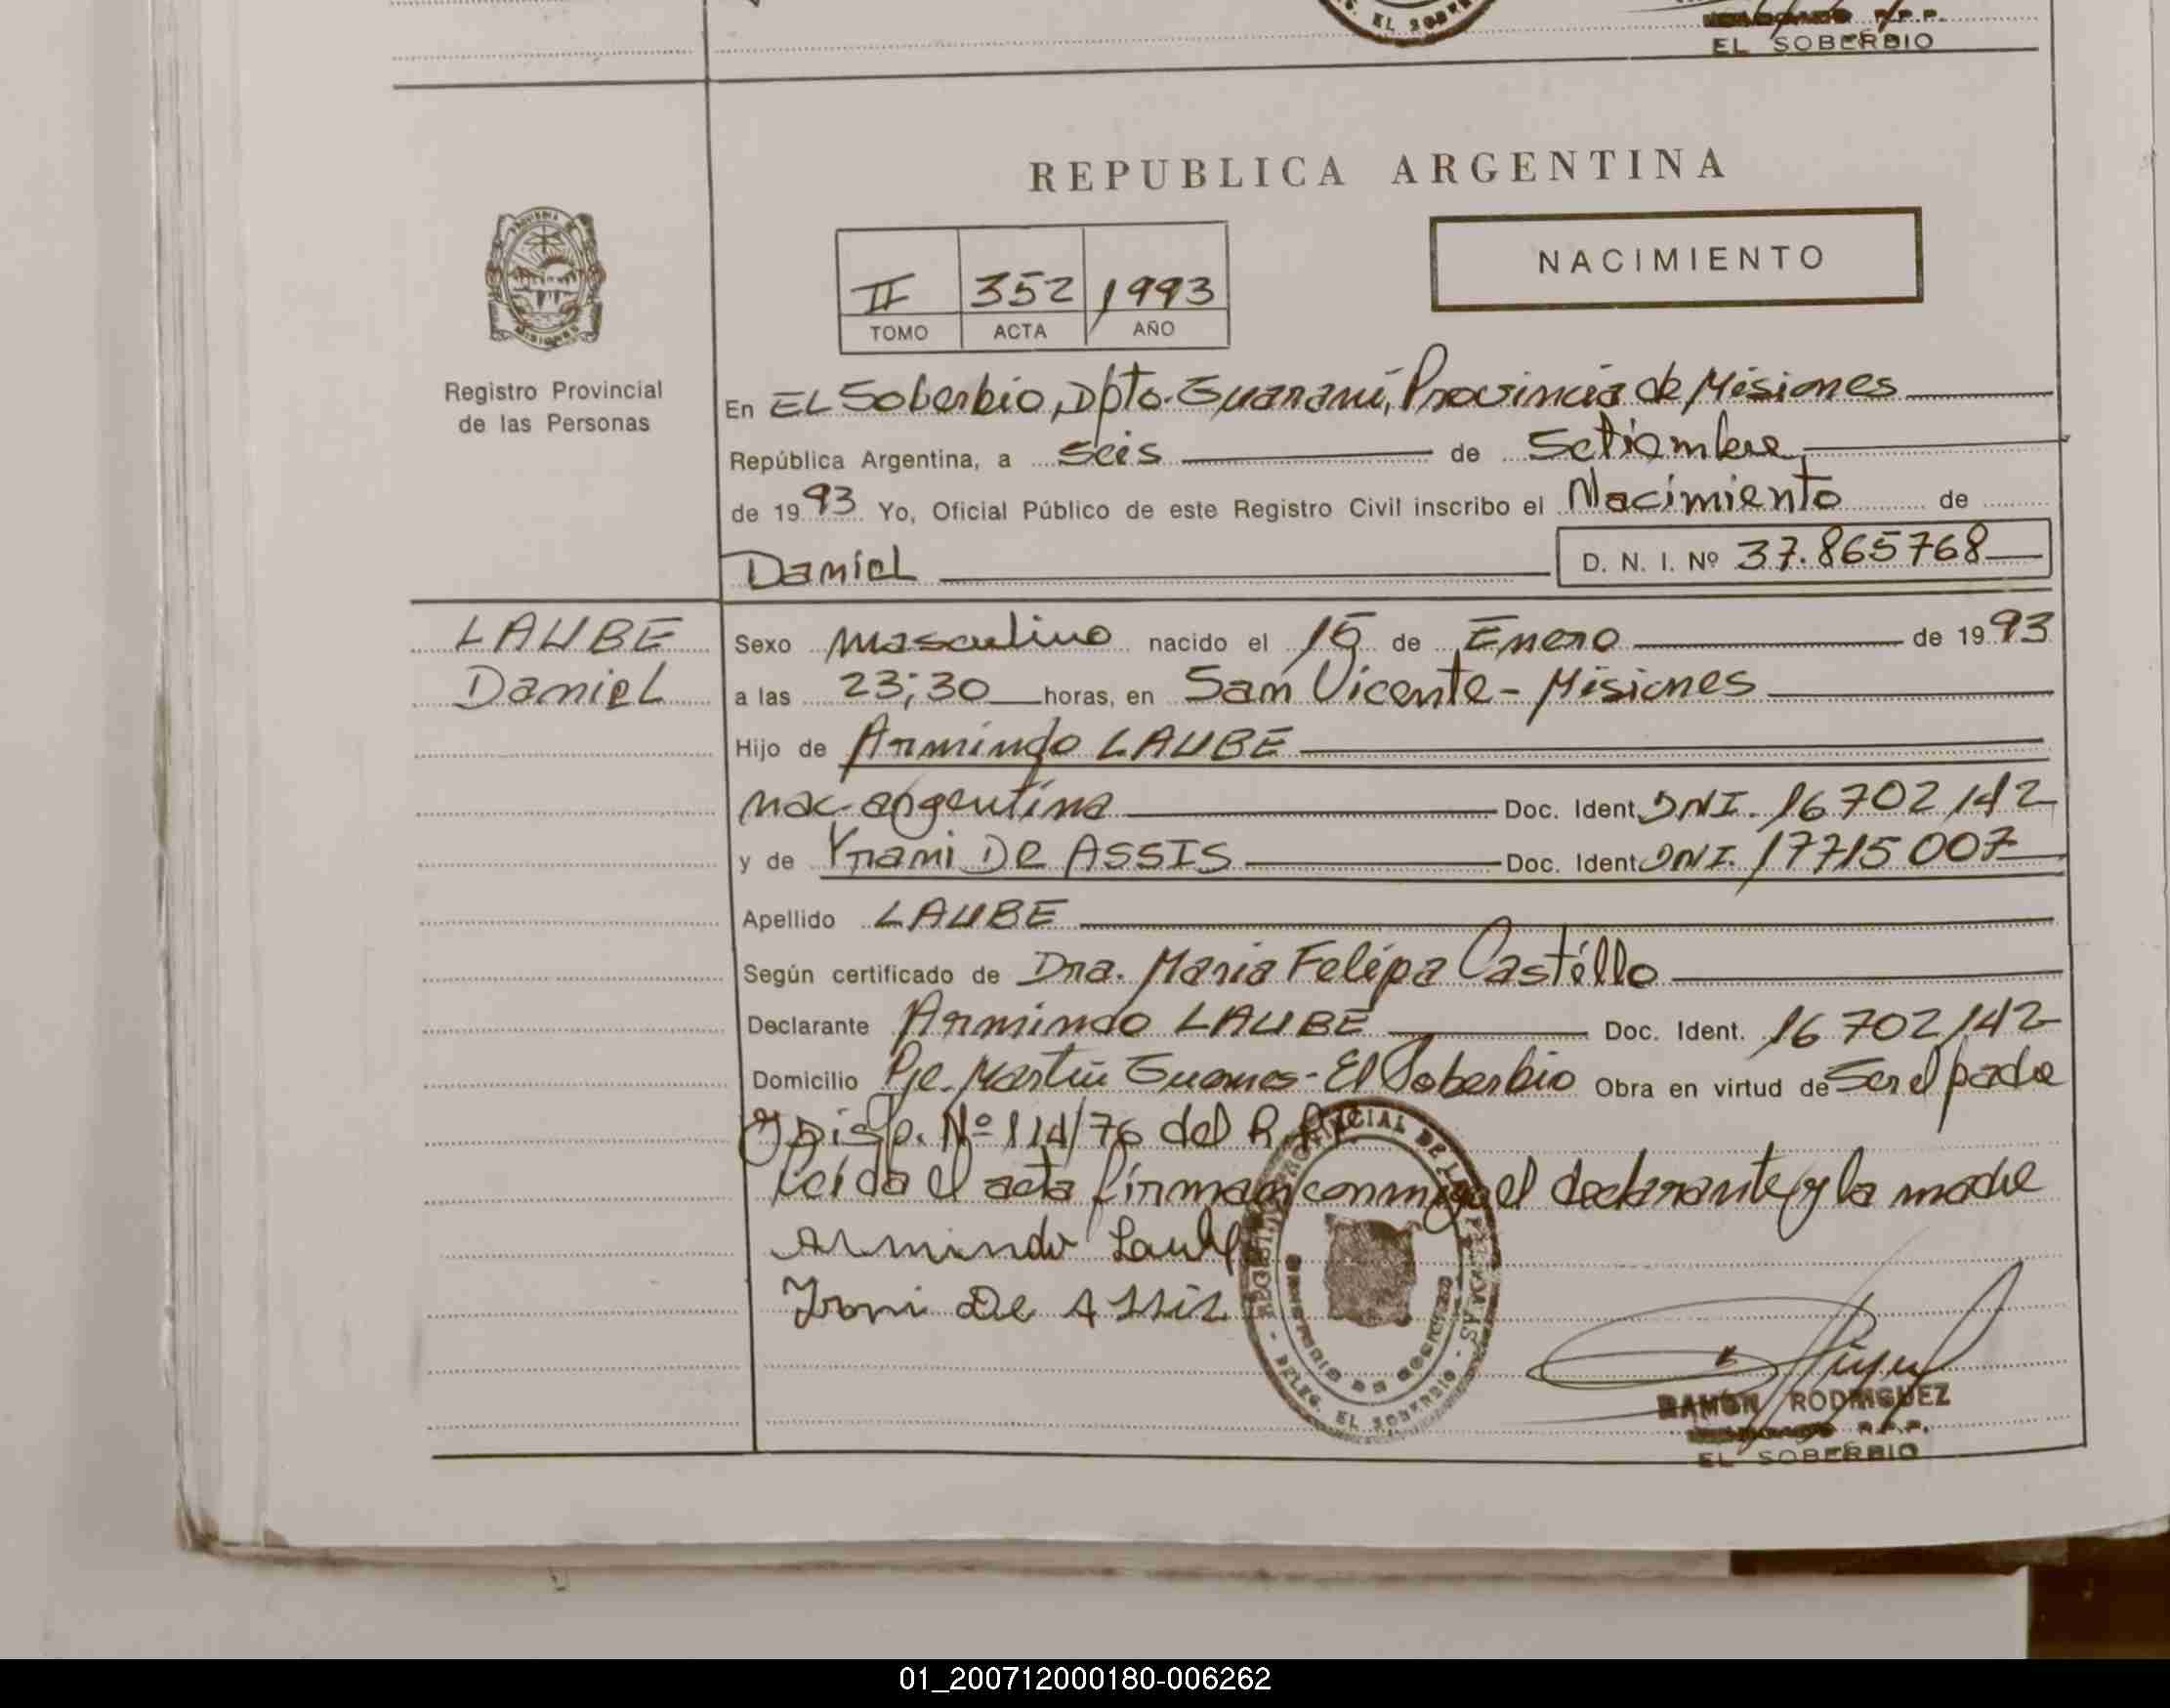 EL SOBERBIO
R.P.P.
EL SOBERBIO
REPUBLICA ARGENTINA
NACIMIENTO
II 352 1993
TOMO ACTA AÑO
MISIONES
Registro Provincial
de las Personas
En EL Soberbio, Dpto. Guaraní, Provincia de Misiones
República Argentina, a seis de Setiembre
de 1993 Yo, Oficial Público de este Registro Civil inscribo el Nacimiento de
Daniel D. N. I. Nº 37.865768
LAUBE
Daniel
Sexo masculino nacido el 15 de Enero de 1993
a las 23;30 horas, en San Vicente - Misiones
Hijo de Armindo LAUBE
nac. argentina Doc. Ident. DNI. 16702142
y de Yrani DE ASSIS Doc. Ident. DNI. 17715007
Apellido LAUBE
Según certificado de Dra. Maria Felipa Castillo
Declarante Armindo LAUBE Doc. Ident. 16702142
Domicilio Pje. Martín Guemes - El Soberbio Obra en virtud de Ser el padre
y Disp. Nº 114/76 del R.P.P.
Leída el acta firman conmigo el declarante y la madre
Armindo Laube
Irani De Assis
REGISTRO PROVINCIAL DE LAS PERSONAS
MINISTERIO DE GOBIERNO
- DELEG. EL SOBERBIO -
RAMÓN RODRIGUEZ
R.P.P.
EL SOBERBIO
01_200712000180-006262